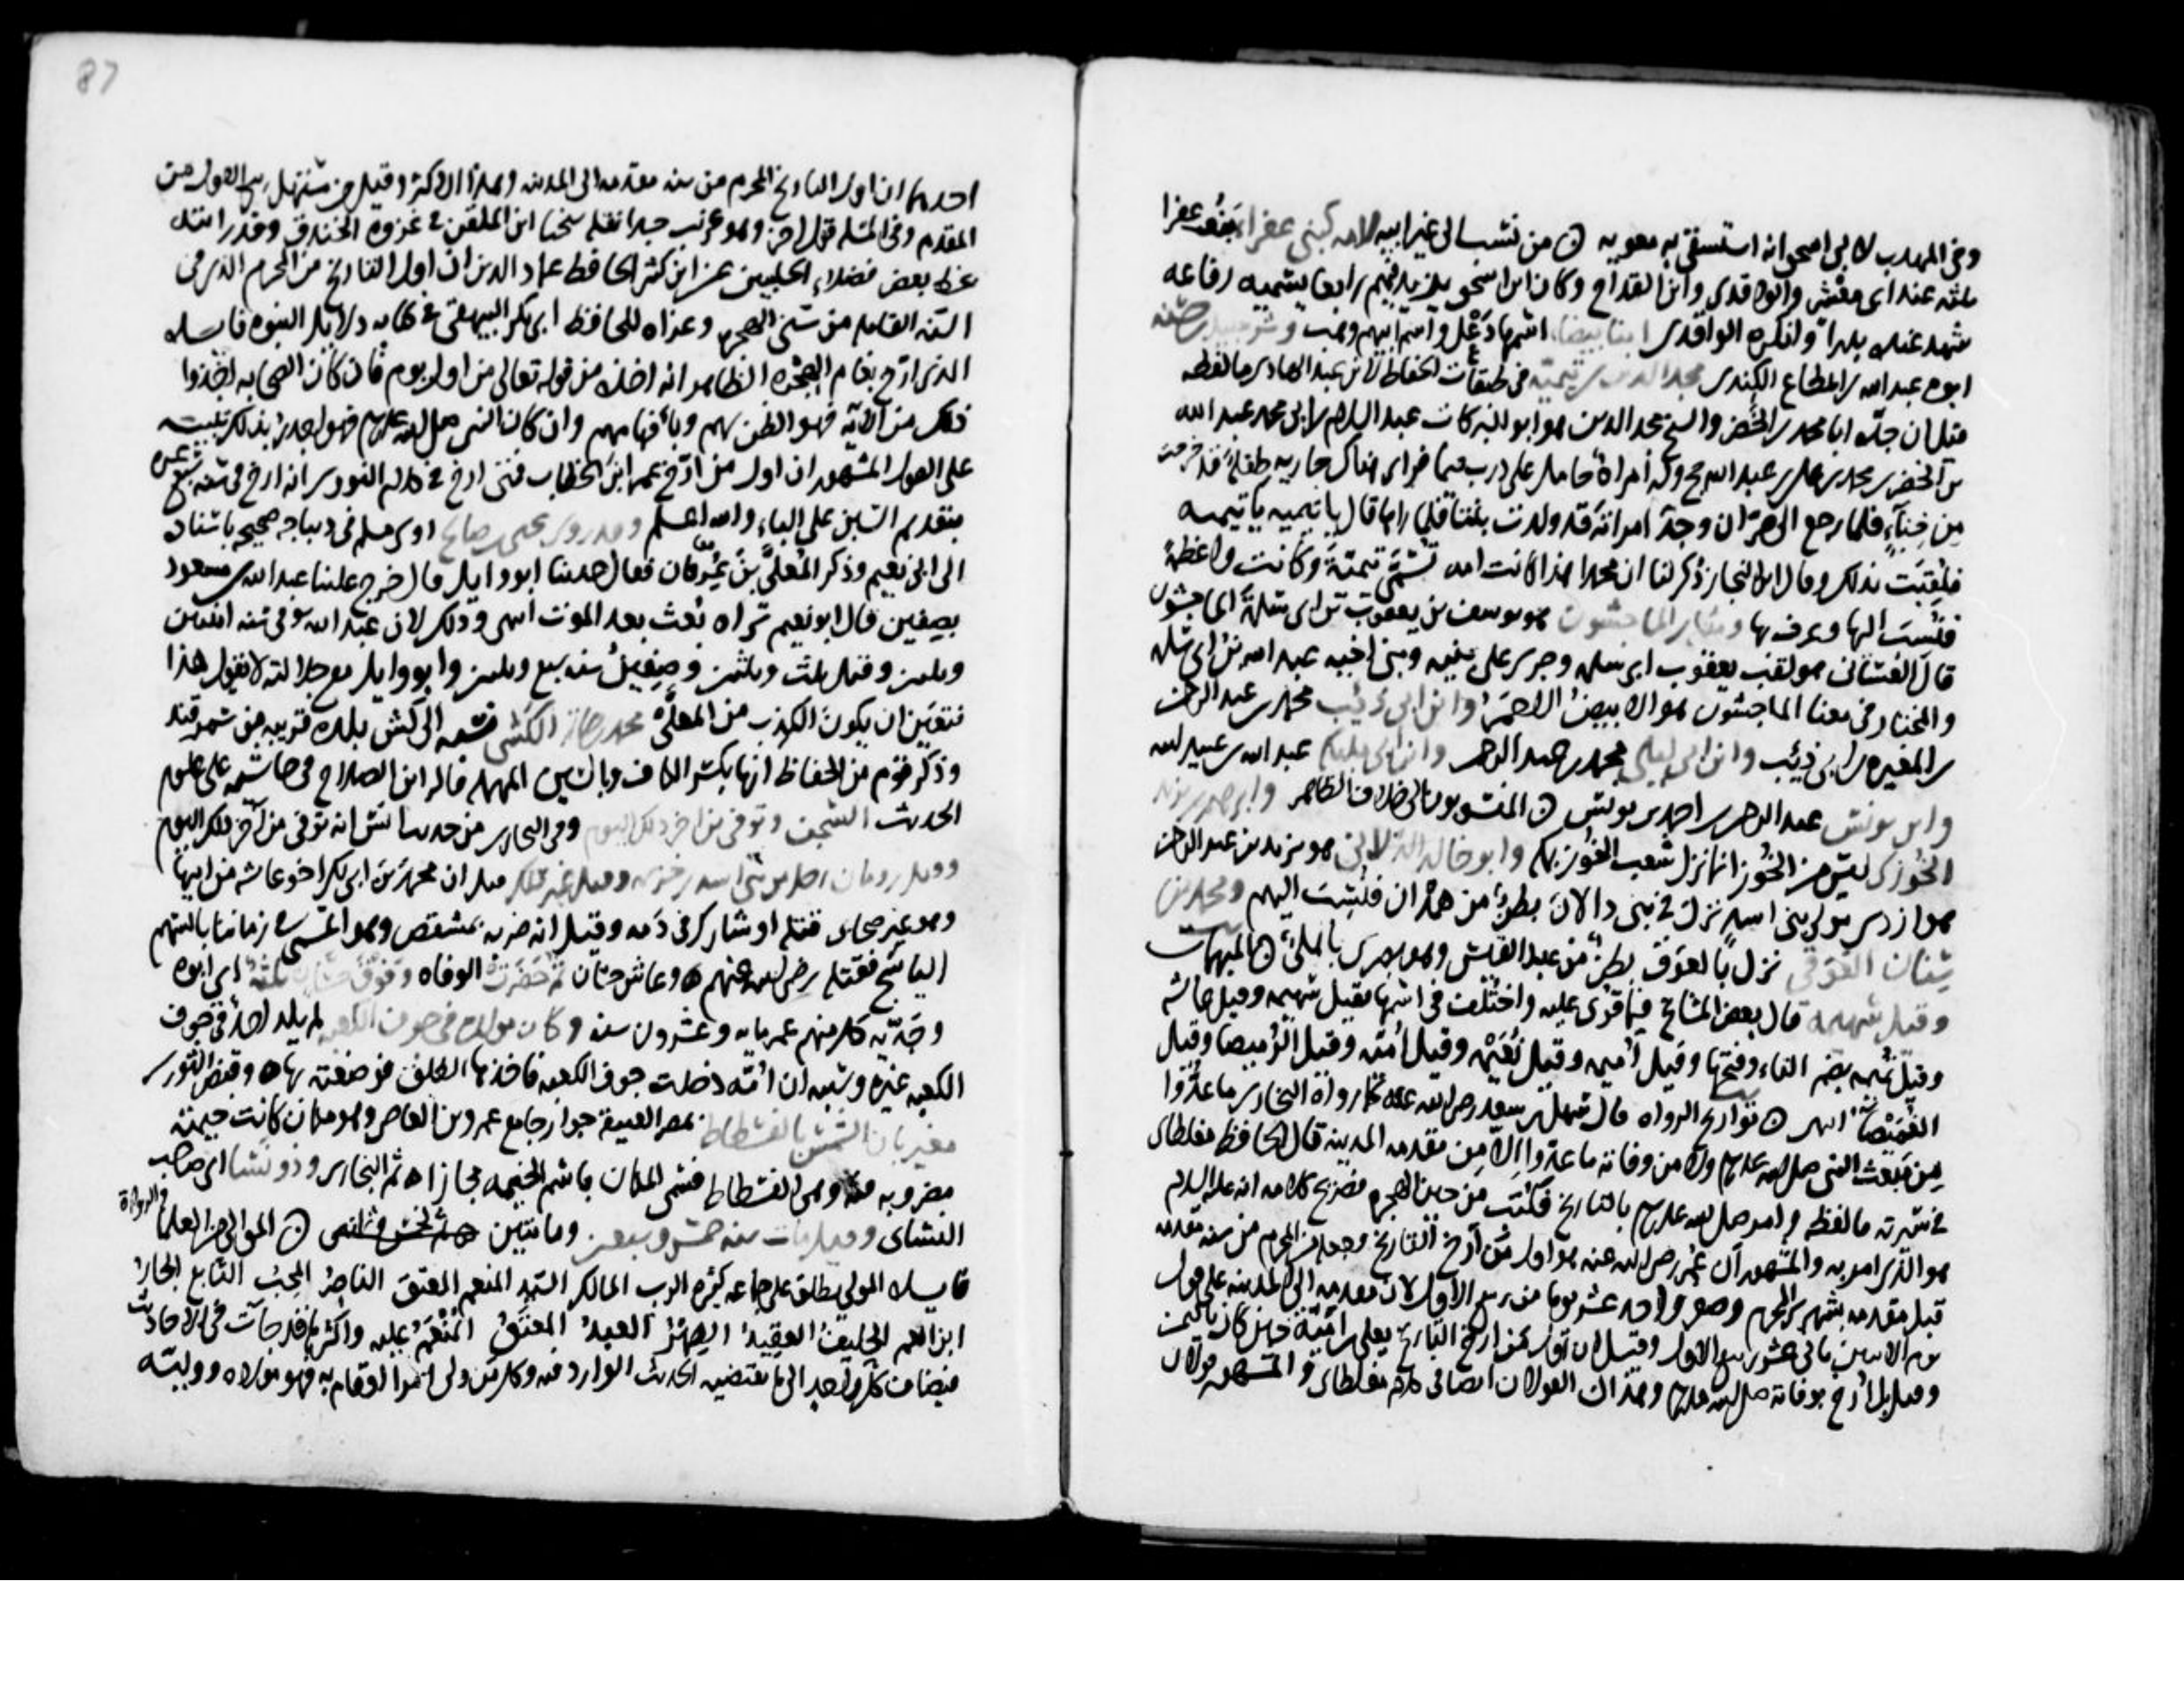 وفي المهذب لابي اسحق انه استسقى به معويه ۞ من نسب الى غير ابيه لامه كبني عفراء بنو عفرا
ثلثه عند ابي معشر والواقدي وابن القداح وكان ابن اسحق يزيد فيهم رابعا يسميه رفاعه
شهد عنده بدرا وانكره الواقدي ابنا بيضا اسمها دعد واسم ابيهم وهب وشرحبيل بن حسنه
ابوه عبد الله بن المطاع الكندي مجد الدين بن تيمية في طبقات الحفاظ لابن عبد الهادي ما لفظه
قيل ان جده ابا محمد بن الخضر والشيخ مجد الدين هو ابو البركات عبد السلام بن ابي محمد عبد الله
بن الخضر بن محمد بن علي بن عبد الله حج وله امراة حامل على درب تيما فراى هناك جاريه طفلة قد خرجت
من خباء فلما رجع الى حران وجد امراته قد ولدت بنتا فلما راها قال يا تيميه يا تيميه
فلقبت بذلك وقال ابن النجار ذكر لنا ان محمدا هذا كانت امه تسمى تيمية وكانت واعظة
فنسب اليها وعرف بها ومثل الماجشون هو يوسف بن يعقوب بن ابي سلمة الماجشون
قال الغساني هو لقب يعقوب ابي سلمه وجرى على بنيه وبني اخيه عبد الله بن ابي سلمه
والمختار في معنا الماجشون هو الابيض الاحمر وابن ابي ذئب محمد بن عبد الرحمن
بن المغيره بن ابي ذئب وابن ابي ليلى محمد بن عبد الرحمن وابن ابي مليكه عبد الله بن عبيد الله
وابن يونس عبد الرحمن بن احمد بن يونس ۞ المنسوبون الى خلاف الظاهر وابراهيم بن يزيد
الخوزي ليس من الخوز انما نزل شعب الخوز بمكه وابو خالد الدالاني هو يزيد بن عبد الرحمن
هو ازدي مولى بني اسد نزل في بني دالان بطن من همدان فنسب اليهم ومحمد بن
سنان العوقي نزل بالعوق بطن من عبد القيس وهو بصري باهلي ۞ المبهمات
وقيل سهيمه قال بعض المشائخ فيما قرئ عليه واختلف في اسمها فقيل سهيمه وقيل عائشه
وقيل تميمه بضم التاء وفتحها وقيل اميمه وقيل نعيمه وقيل امنه وقيل الرميصا وقيل
الغميصا انتهى ۞ تواريخ الرواه قال سهل بن سعد رضي الله عنه كما رواه البخاري ما عدوا
من مبعث النبي صلى الله عليه وسلم ولا من وفاته ما عدوا الا من مقدمه المدينه قال الحافظ مغلطاى
في سيرته ما لفظه وامر صلى الله عليه وسلم بالتاريخ فكتب من حين الهجره فصريح كلامه انه عليه السلام
هو الذي امر به والمشهور ان عمر رضي الله عنه هو اول من ارخ التاريخ وجعله من المحرم من سنه مقدمه
قبل مقدمه بشهر المحرم وصفر واحد عشر يوما من ربيع الاول لان مقدمه الى المدينه على قول
يوم الاثنين ثاني عشر ربيع الاول وقيل ان اول من ارخ التاريخ يعلى بن امية حين كان باليمن
وقيل بل ارخ بوفاته صلى الله عليه وسلم وهذان القولان ايضا في كلام مغلطاى والمشهور قولان
87
احدهما ان اول التاريخ المحرم من سنه مقدمه الى المدينه وهذا الاكثر وقيل من مستهل ربيع الاول من
المقدم وفي المسله قول اخر وهو غريب جدا نقله شيخنا ابن الملقن في غزوة الخندق وقد رايته
بخط بعض فضلاء الحلبيين عن ابن كثير الحافظ عماد الدين ان اول التاريخ من المحرم الذي في
السنه القابله من سني الهجره وعزاه للحافظ ابي بكر البيهقي في كتابه دلايل النبوه فايده
الذي ارخ بعام الهجره الظاهر انه اخذه من قوله تعالى من اول يوم فان كان الصحابه اخذوا
ذلك من الايه فهو الظن بهم وبافهامهم وان كان النبي صلى الله عليه وسلم فهو اجدر بذلك تنبيه
على القول المشهور ان اول من ارخ عمر ابن الخطاب فمتى ارخ في كلام النووي انه ارخ في سنه سبع عشره
بتقديم السين على الباء والله اعلم وقد روى يحيى بن صالح روى مسلم في ديباجه صحيحه باسناده
الى ابي نعيم وذكر المعلى بن عرفان فقال حدثنا ابو وايل قال خرج علينا عبد الله بن مسعود
بصفين قال ابو نعيم تراه بعث بعد الموت انتهى وذلك لان عبد الله توفي سنه اثنتين
وثلثين وقيل ثلث وثلثين وصفين سنه سبع وثلثين وابو وايل مع جلالته لا يقول هذا
فتعين ان يكون الكذب من المعلى محمد الكشي نسبه الى كش بلده قريبه من سمرقند
وذكر قوم من الحفاظ انها بكسر الكاف وبالسين المهمله قاله ابن الصلاح في حاشيته على علوم
الحديث الشجت وتوفي من اخر ذلك اليوم وفي البخاري من حديث انس انه توفي من آخر ذلك اليوم
ورجل من بني اسد بن خزيمه وقيل غير ذلك قيل ان محمد بن ابي بكر اخو عائشه من ابيها
وهو غير صحابي قتله او شارك في دمه وقيل انه ضربه بمشقص وهو المسمى في زماننا بالسهم
الناسج فقتله رضي الله عنهم ۞ وعاش حسان ثم حضرت الوفاه وفوق حسان ثلثه اي ابوه
وجده كل منهم عمر مايه وعشرون سنه وكان مولده في جوف الكعبه لم يلد احد في جوف
الكعبه غيره وسببه ان امه دخلت جوف الكعبه فاخذها الطلق فوضعته بها ۞ وقبض الثوري
بمصر العتيقه جوار جامع عمرو بن العاص وهو مكان كانت خيمته
مضروبه فيه وهي الفسطاط فسمي المكان باسم الخيمه مجازا ۞ ثم البخاري وذو نسا اي صاحب
النسائي وقيل مات سنه خمس وسبعين ومائتين ۞ الموالي من العلما والرواة
فايده المولى يطلق على جماعه كثيره الرب المالك السيد المنعم المعتق الناصر المحب التابع الجار
ابن العم الحليف العقيد الصهر العبد المعتق المنعم عليه واكثرها قد جات في الاحاديث
فيضاف كل واحد الى ما يقتضيه الحديث الوارد فيه وكل من ولي امرا او قام به فهو مولاه ووليه